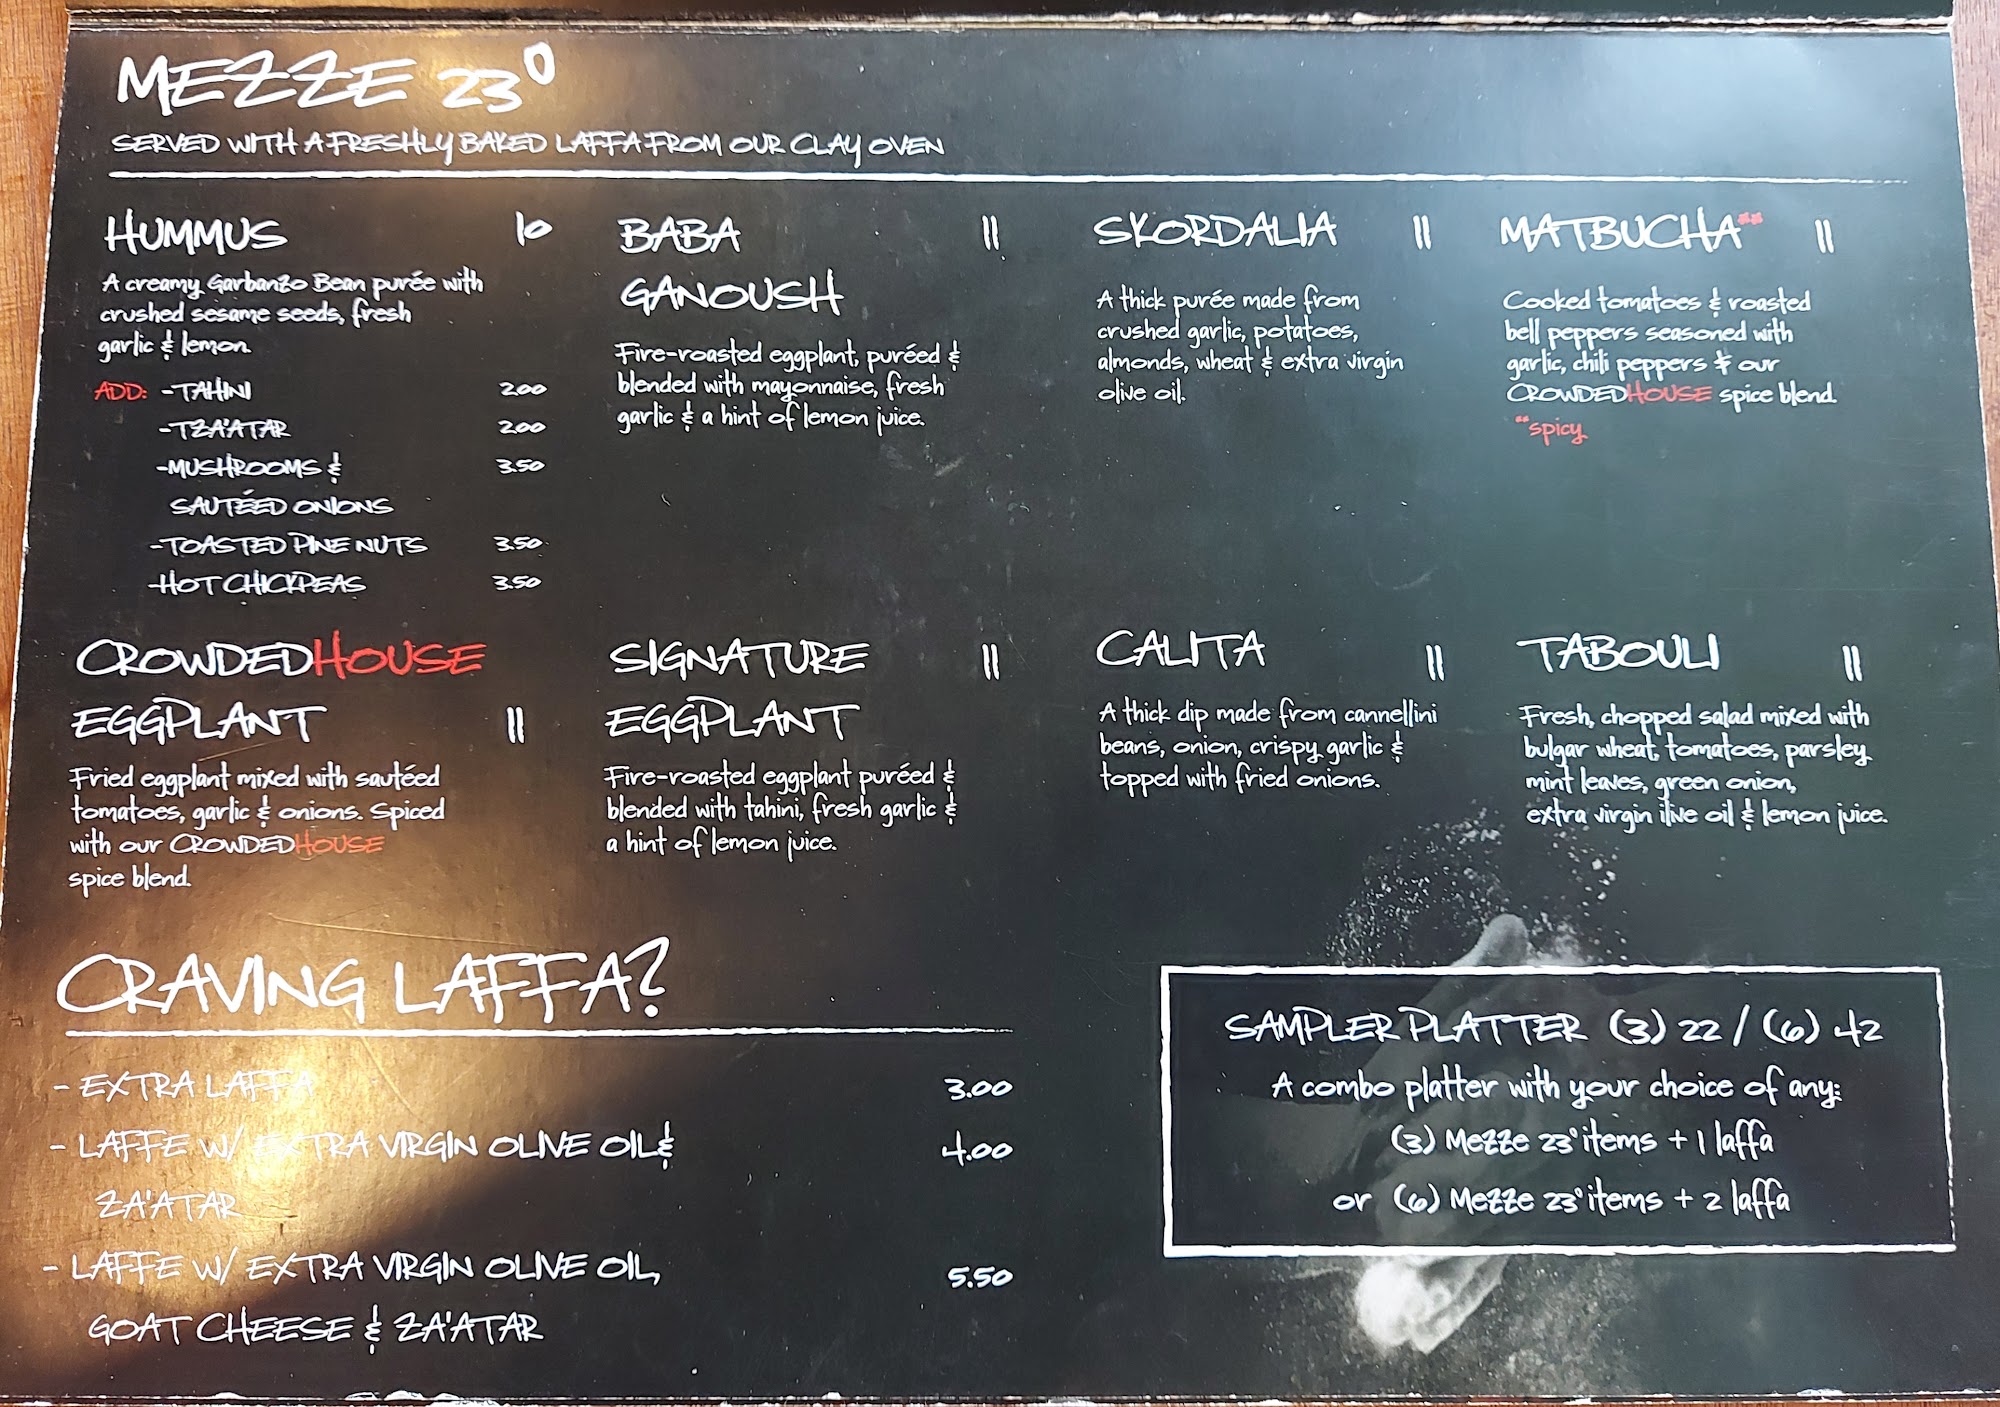 MEZZE 23°
SERVED WITH A FRESHLY BAKED LAFFA FROM OUR CLAY OVEN
HUMMUS 10
A creamy Garbanzo Bean purée with
crushed sesame seeds, fresh
garlic & lemon.
ADD: -TAHINI 2.00
-TZA'ATAR 2.00
-MUSHROOMS & 3.50
SAUTÉED ONIONS
-TOASTED PINE NUTS 3.50
-HOT CHICKPEAS 3.50
BABA 11
GANOUSH
Fire-roasted eggplant, puréed &
blended with mayonnaise, fresh
garlic & a hint of lemon juice.
SKORDALIA 11
A thick purée made from
crushed garlic, potatoes,
almonds, wheat & extra virgin
olive oil.
MATBUCHA** 11
Cooked tomatoes & roasted
bell peppers seasoned with
garlic, chili peppers & our
CROWDEDHOUSE spice blend.
**spicy
CROWDEDHOUSE
EGGPLANT 11
Fried eggplant mixed with sautéed
tomatoes, garlic & onions. Spiced
with our CROWDEDHOUSE
spice blend.
SIGNATURE 11
EGGPLANT
Fire-roasted eggplant puréed &
blended with tahini, fresh garlic &
a hint of lemon juice.
CALITA 11
A thick dip made from cannellini
beans, onion, crispy garlic &
topped with fried onions.
TABOULI 11
Fresh, chopped salad mixed with
bulgar wheat, tomatoes, parsley
mint leaves, green onion,
extra virgin ilive oil & lemon juice.
CRAVING LAFFA?
- EXTRA LAFFA 3.00
- LAFFE W/ EXTRA VIRGIN OLIVE OIL & 4.00
ZA'ATAR
- LAFFE W/ EXTRA VIRGIN OLIVE OIL, 5.50
GOAT CHEESE & ZA'ATAR
SAMPLER PLATTER (3) 22 / (6) 42
A combo platter with your choice of any:
(3) Mezze 23° items + 1 laffa
or (6) Mezze 23° items + 2 laffa